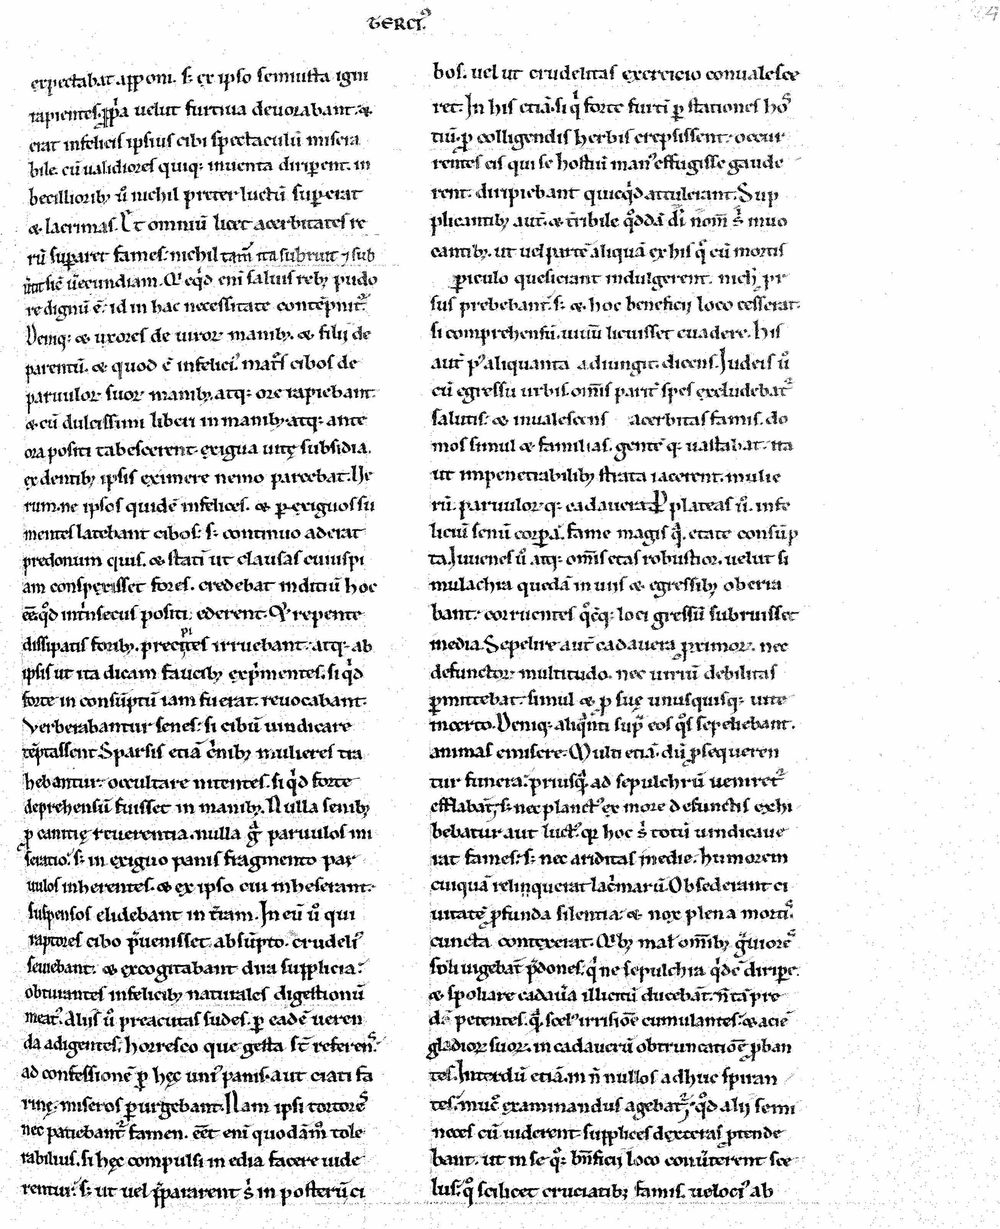 TERCI'
expectabat apponi. s; ex ipso semiusta igni
rapientes. ppͣa velut furtiua deuorabant. &
erat infelicis ipsius cibi spectaculū misera
bile. cū ualidiores quiq; inuenta diriperent. in
becilliorib; ů nichil preter luctū supererat
& lacrimas. Et omniū licet acerbitates re
rū superaret fames; nichil tam̄ ita subruit ⁊ sub
uecundiam. Qͥcqͥd enī saluis reb; pudo
re dignū ē; id in hac necessitate contēpnit᷑.
Deniq; & uxores de uiror manib; & filii de
parentū. & quod ē infelici' matͬs cibos de
paruulor suor manib; atq; ore rapiebant.
& cū dulcissimi liberi in manib; atq; ante
ora positi tabescerent. exigua uitę subsidia.
ex dentib; ipsis eximere nemo parcebat. Ve
rum ne ipsos quidē infelices. & p̱ exiguos su
mentes latebant cibos. s; continuo aderat
predonum quis. & statī ut clausas cuiuspi
am conspexisset fores. credebat inditiū hoc
ēē. qd̄ intͥnsecus positi ederent. Qͥ repente
dissipatis forib; precipites irruebant. atq; ab
ipsis ut ita dicam faucib; expͥmentes. si qͥd
forte in consūptū iam fuerat. reuocabant.
Verberabantur senes; si cibū uindicare
tēptassent. Sparsis etiā cͥnib; mulieres tra
hebantur. occultare nitentes. si qͥd forte
deprehensū fuisset in manib;. Nulla senib;
p̱ canitię reuerentia. nulla gͣ paruulos mi
seratio. s; in exiguo panis fragmento par
uulos inherentes. & ex ipso cui inheserant.
suspensos elidebant in t̄ram. In eū ů qui
raptores cibo p̄uenisset absūpto. crudeli'
seuiebant. & excogitabant dira supplicia.
obturantes infelicib; naturales digestionū
meat'. Aliis ů preacutas sudes. p̱ eadē ueren
da adigentes. horresco que gesta st̄ referen'.
ad confessionē p̱ hęc uni' panis. aut ciati fa
rinę. miseros p̱urgebant. Nam ipsi tortores
nec patiebant᷑ famen. eēt enī quodam̄ tole
rabilius. si hęc compulsi inedia facere uide
rentur. s; ut uel p̄pararent s; in posterū ci
bos. uel ut crudelitas exercicio conualesce
ret. In his etiā. si qͥ forte furtī p̱ stationes ho
stiū. p̱ colligendis herbis erepsissent. occur
rentes eis qui se hostiū man' effugisse gaude
rent. diripiebant quicqͥd attulerant. Sup
plicantib; aut̄. & t̄ribile qͦddā dī nom̄ s; inuo
cantib;. ut uel partē aliquā ex his qͥ cū mortis
p̱iculo quesierant indulgerent. nich̄ pr
sus prebebant. s; & hoc beneficii loco cesserat.
si comprehensū. uiuū licuisset euadere. His
aut̄ p' aliquanta adiungit. dicens. Iudeis ů
cū egressu urbis. om̄s parit̄ spes excludebat᷑
salutis; & inualescens acerbitas famis. do
mos simul & familias. gente q; uastabat. ita
ut impenetrabilib; strata iacerent. mulie
rū. paruulor q; cadauera. P̱ plateas ů. infe
liciū senū corpͣa. fame magis qͣ. etate consūp
ta. Iuuenes ů. atq; om̄is etas robustior. uelut si
mulachra quedā in uiis & egressib; oberra
bant. corruentes qͦcq; loci gressū subruisset
inedia. Sepelire aut̄ cadauera p̱rimor. nec
defunctor multitudo. nec uiriū debilitas
p̱mittebat. simul & p̱ suę unusquisq; uite
incerto. Deniq; aliqͣnti supͬ eos qͦs sepeliebant.
animas emisere. Multi etiā. dū p̱sequeren
tur funera. priusqͣ. ad sepulchrū ueniret᷑
efflabant. s; nec planct' ex more defunctis exhi
bebatur aut luct'. qͥ hoc s; totū uindicaue
rat fames; s; nec ariditas inedie. humorem
cuiquā relinquerat lacͥmarū. Obsederant ci
uitatē p̱funda silentia. & nox plena morti'.
cuncta contexerat. Qͥb; mal' om̄ib; gͣuiores
soli uigebāt p̄dones. qͥ ne sepulchra qͥdē diripe.
& spoliare cadau̓a illicitū ducebāt. n̄ tā pre
dā petentes. qͣ. scel' irrisiōe cumulantes. & aciē
gladior suor. in cadauerū obtruncatiōe p̱ban
tes. Interdū etiā. in n̄ nullos adhuc spiran
tes. mucͦ examinandus agebat᷑. qͦd alii semi
neces cū uiderent. supplices dexteras p̱tende
bant. ut in se qͦq; bn̄ficii loco conu̓terent sce
lus. qͦ scilicet cruciatib; famis. ueloci' ab